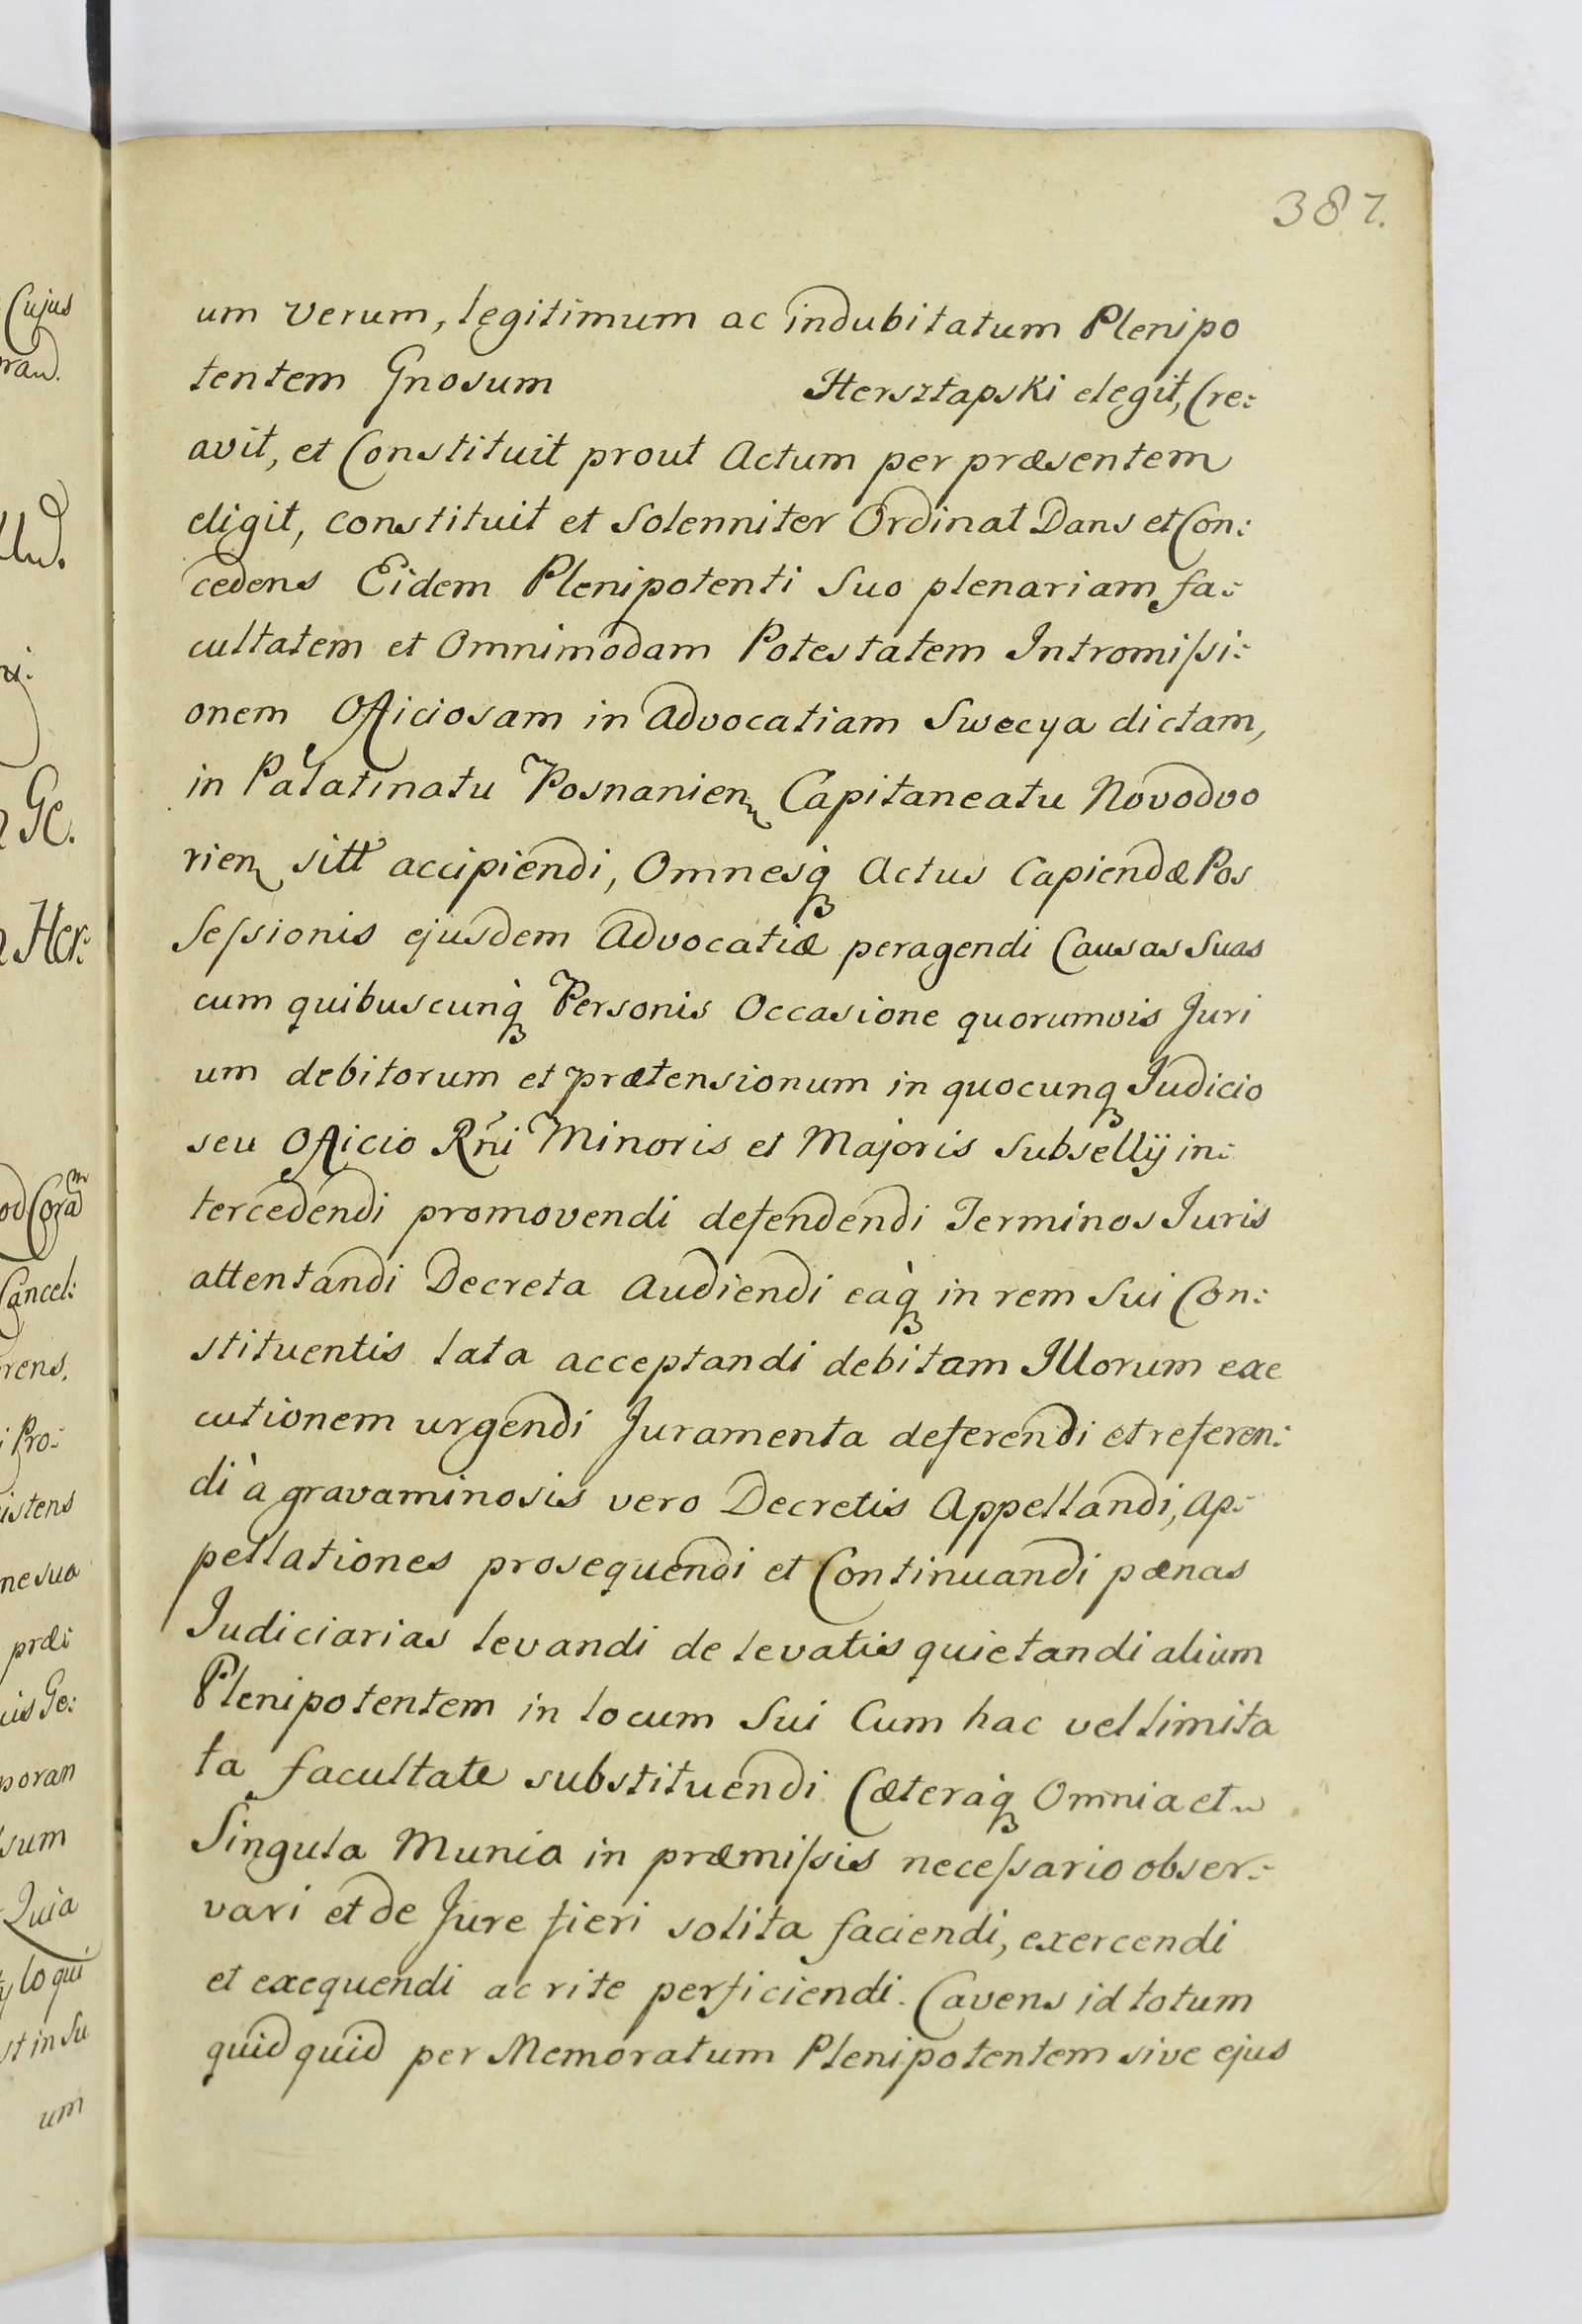 387.
um verum, legitimum ac indubitatum Plenipo
tentem Gnosum Hersztapski elegit, Cre:
avit, et Constituit prout Actum per præsentem
eligit, constituit et Solenniter Ordinat Dans et Con:
cedens Eidem Plenipotenti Suo plenariam fa:
cultatem et Omnimodam Potestatem Intromiſsi:
onem Officiosam in Advocatiam Swecya dictam,
in Palatinatu Posnanien Capitaneatu Novodvo
rien sitt accipiendi, Omnesq Actus Capiendæ Pos
Seſsionis ejusdem Advocatiæ peragendi Causas Suas
cum quibuscunq Personis Occasione quorumvis Juri
um debitorum et prætensionum in quocunq Judicio
seu Officio Rñi Minoris et Majoris Subsellij in:
tercedendi promovendi defendendi Terminos Juris
attentandi Decreta Audiendi eàq in rem Sui Con:
stituentis lata acceptandi debitam Illorum exe
cutionem urgendi Juramenta deferendi et referen:
di à gravaminosis vero Decretis Appellandi, Ap:
pellationes prosequendi et Continuandi pænas
Judiciarias levandi de levatis quietandi alium
Plenipotentem in locum Sui Cum hac vel limita
ta facultate substituendi Cæteraq Omnia et
Singula Munia in præmiſsis neceſsario obser:
vari et de Jure fieri solita faciendi, exercendi
et exequendi ac rite perficiendi. Cavens id totum
quid quid per Memoratum Plenipotentem sive ejus
Cujus
Ge.
Her:
Cancel:
rens.
i Pro:
istens
ne sua
præi
cis Ge:
poran
sum
Quia
lo qui
st in Su
um